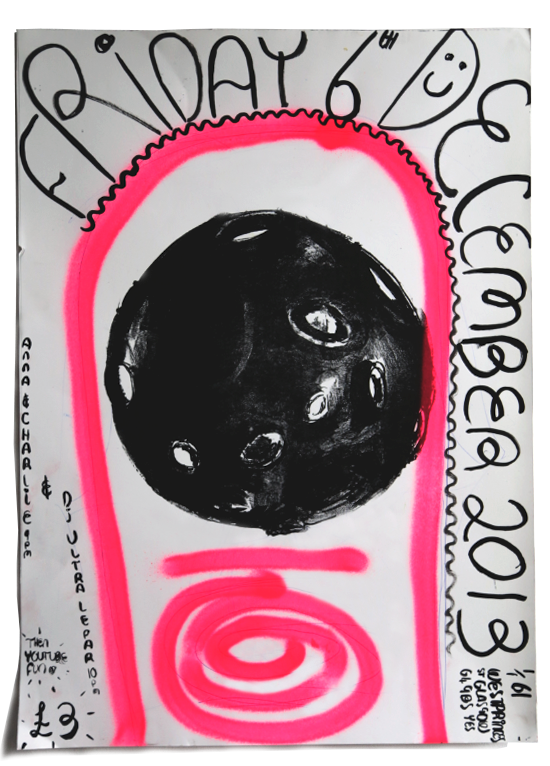 FRIDAY 6TH DECEMBER 2013
ANNA & CHARLIE 9pm
&
DJ ULTRA LEPAR 10pm
THEN
YOUTUBE
FUN
£3
1/61
WEST PRINCES
ST GLASGOW
G4 9BS YES